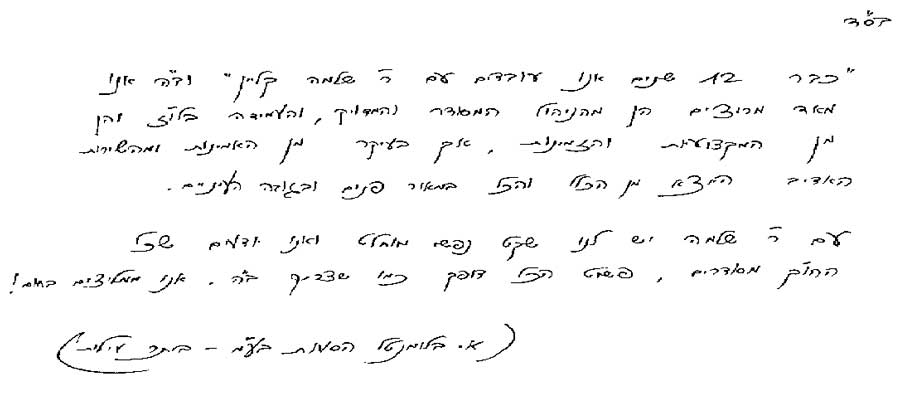 בס"ד
"כבר 12 שנים אנו עובדים עם ר' שלמה קליין" וב"ה אנו
מאד מרוצים הן מהניהול המסודר והמדויק, והעמידה בלו"ז והן
מן המקצועיות והזמינות, אך בעיקר מן האמינות ומהשירות
האדיב היוצא מן הכלל והכל במאור פנים ובגובה העיניים.
עם ר' שלמה יש לנו שקט נפשי מוחלט ואנו יודעים שכל
החוק מסודרים, פשוט הכל דופק כמו שצריך ב"ה. אנו ממליצים בחום!
(א. בלומנטל הסעות בע"מ - ביתר עילית)